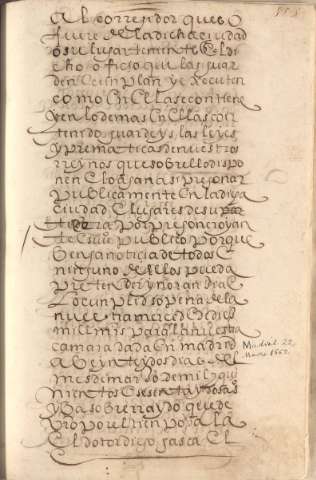 al corregidor que es o
fuere de la dicha ciudad
o su lugarteniente en el di
cho oficio que las guar
den cunplan y executen
como en ellas se contiene
y en lo demas en ellas con
tenido guardeys las leyes
y prematicas de nuestros
rreynos que sobre ello dispo
nen e lo hagan asi pregonar
publicamente en la dicha
ciudad e lugares de su
tierra por pregonero y an
te escriuano publico porque
benga a noticia de todos e
ninguno de ellos pueda
pretender ynorancia
lo cunplid so pena de la
nuestra merced e de diez
mill mrs para la nuestra
camara dada en madrid
a beynte y dos dias del
mes de março de mil y qui
nientos e sesenta y dos as
y ba so burrado que de
zio por
el dotor diego gasca el
Madrid 22,
Marzo 1562.